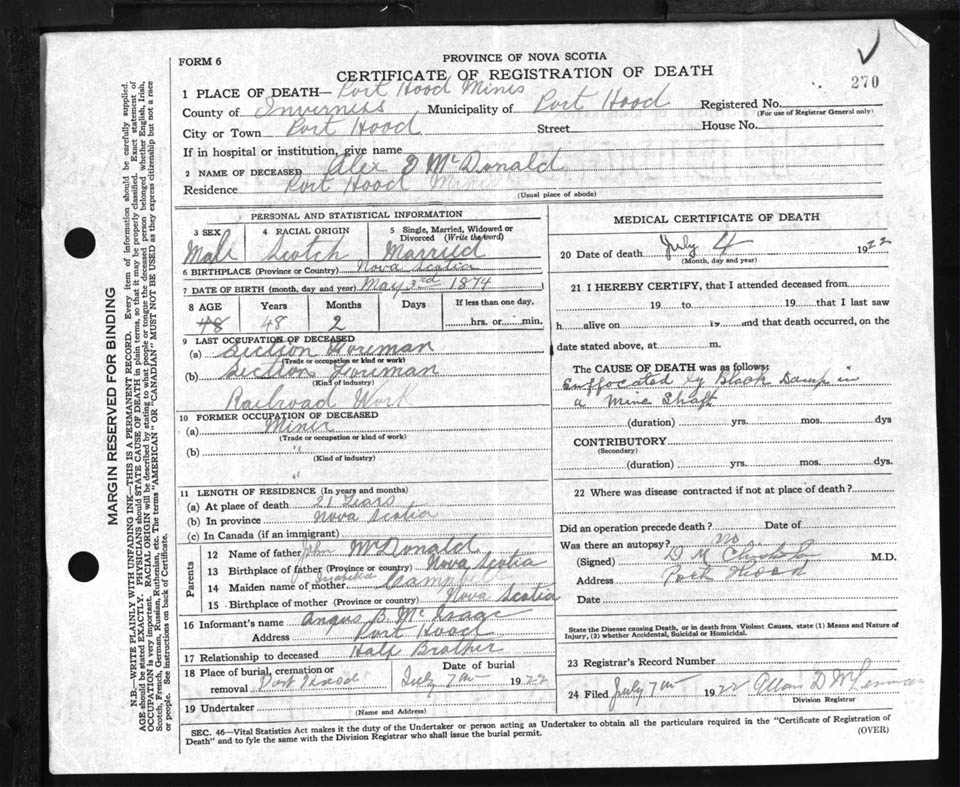 FORM 6
PROVINCE OF NOVA SCOTIA
CERTIFICATE OF REGISTRATION OF DEATH
270
1 PLACE OF DEATH— Port Hood Mines
County of Inverness Municipality of Port Hood Registered No.
(For use of Registrar General only)
City or Town Port Hood Street House No.
If in hospital or institution, give name
2 NAME OF DECEASED Alex D McDonald
Residence Port Hood Mines
(Usual place of abode)
PERSONAL AND STATISTICAL INFORMATION
3 SEX 4 RACIAL ORIGIN 5 Single, Married, Widowed or Divorced (Write the word)
Male Scotch Married
6 BIRTHPLACE (Province or Country) Nova Scotia
7 DATE OF BIRTH (month, day and year) May 3rd 1874
8 AGE Years Months Days If less than one day,
48 48 2 hrs. or min.
9 LAST OCCUPATION OF DECEASED
(a) Section Foreman
(Trade or occupation or kind of work)
(b) Section Foreman
(Kind of industry)
Railroad Work
10 FORMER OCCUPATION OF DECEASED
(a) Miner
(Trade or occupation or kind of work)
(b) "
(Kind of industry)
"
11 LENGTH OF RESIDENCE (In years and months)
(a) At place of death 21 Years
(b) In province Nova Scotia
(c) In Canada (if an immigrant)
Parents
12 Name of father John McDonald
13 Birthplace of father (Province or country) Nova Scotia
14 Maiden name of mother Campbell
15 Birthplace of mother (Province or country) Nova Scotia
16 Informant's name Angus B. McIsaac
Address Port Hood
17 Relationship to deceased Half Brother
18 Place of burial, cremation or removal Port Hood Date of burial July 7th 1922
19 Undertaker
(Name and Address)
MEDICAL CERTIFICATE OF DEATH
20 Date of death July 4 1922
(Month, day and year)
21 I HEREBY CERTIFY, that I attended deceased from
19 to 19 that I last saw
h alive on 19 and that death occurred, on the
date stated above, at m.
The CAUSE OF DEATH was as follows:
Suffocated by Black Damp in
a Mine Shaft
(duration) yrs. mos. dys
CONTRIBUTORY
(Secondary)
(duration) yrs. mos. dys.
22 Where was disease contracted if not at place of death?
Did an operation precede death? Date of
Was there an autopsy? no
(Signed) D M Chisholm M.D.
Address Port Hood
Date
State the Disease causing Death, or in death from Violent Causes, state (1) Means and Nature of
Injury, (2) whether Accidental, Suicidal or Homicidal.
23 Registrar's Record Number
24 Filed July 7th 1922 Allan D McLennan
Division Registrar
SEC. 46—Vital Statistics Act makes it the duty of the Undertaker or person acting as Undertaker to obtain all the particulars required in the "Certificate of Registration of
Death" and to fyle the same with the Division Registrar who shall issue the burial permit.
(OVER)
MARGIN RESERVED FOR BINDING
N.B.—WRITE PLAINLY WITH UNFADING INK—THIS IS A PERMANENT RECORD. Every item of information should be carefully supplied.
AGE should be stated EXACTLY. PHYSICIANS should STATE CAUSE OF DEATH in plain terms, so that it may be properly classified. Exact statement of
OCCUPATION is very important. RACIAL ORIGIN will be described by stating to what people or tongue the deceased person belonged whether English, Irish,
Scotch, French, German, Russian, Ruthenian, etc. The terms "AMERICAN" OR "CANADIAN" MUST NOT BE USED as they express citizenship but not a race
or people. See instructions on back of Certificate.